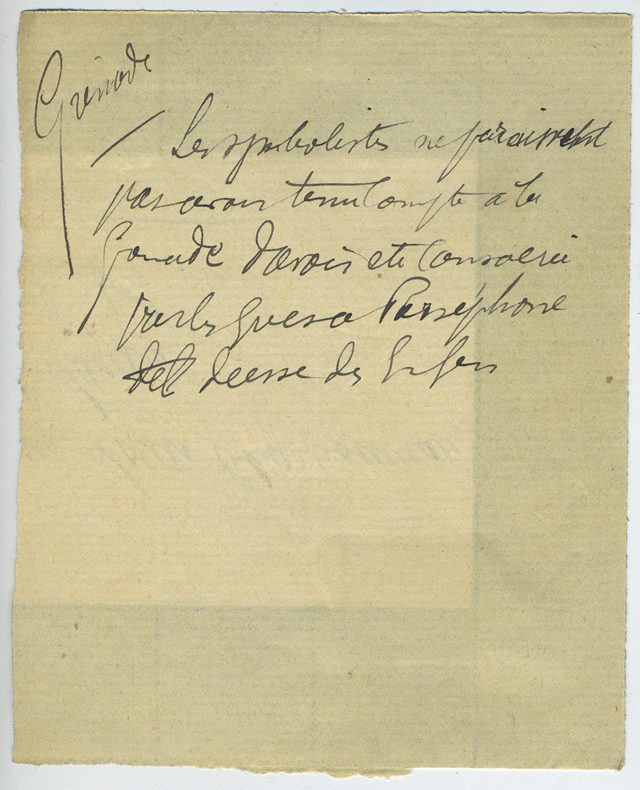 Grenade
Les symbolistes ne paraissent
pas avoir tenu Compte à la
Grenade d'avoir été Consacrée
par les Grecs a Perséphone
déesse des Enfers